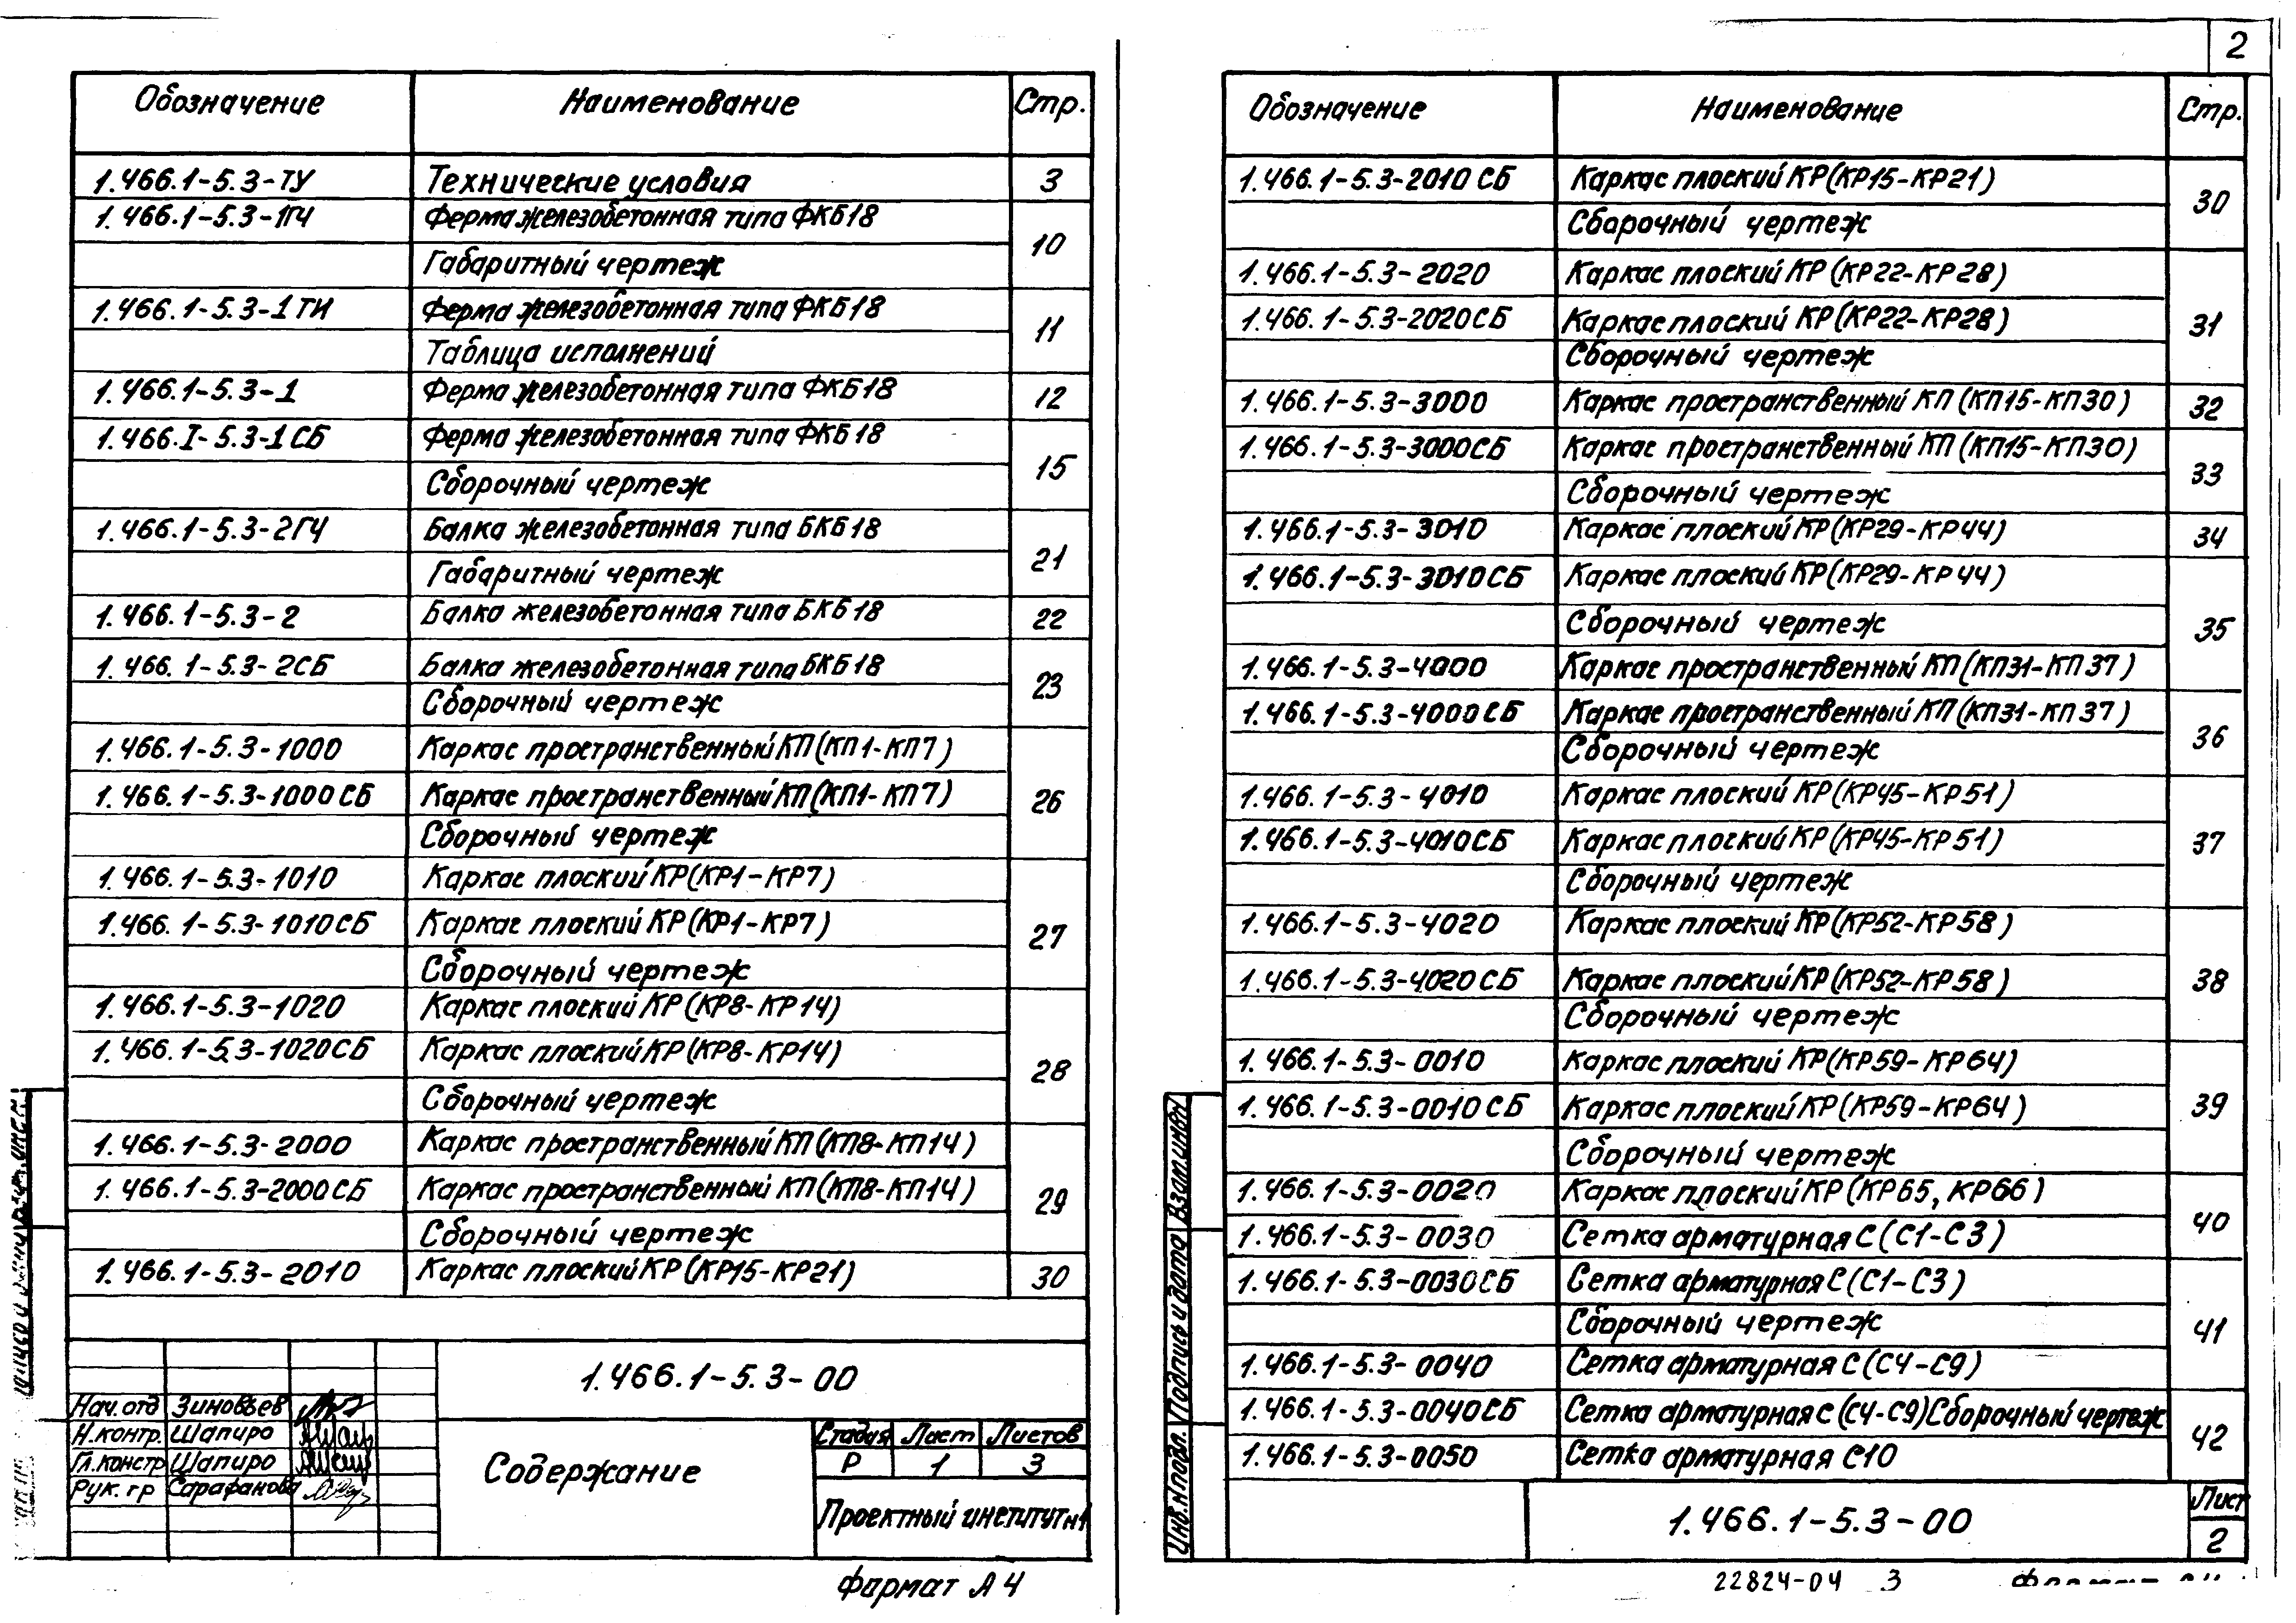 Обозначение Наименование Стр.
1.466.1-5.3-ТУ Технические условия 3
1.466.1-5.3-1ГЧ Ферма железобетонная типа ФКБ18
Габаритный чертеж 10
1.466.1-5.3-1ТИ Ферма железобетонная типа ФКБ18
Таблица исполнений 11
1.466.1-5.3-1 Ферма железобетонная типа ФКБ18 12
1.466.I-5.3-1СБ Ферма железобетонная типа ФКБ18
Сборочный чертеж 15
1.466.1-5.3-2ГЧ Балка железобетонная типа БКБ18
Габаритный чертеж 21
1.466.1-5.3-2 Балка железобетонная типа БКБ18 22
1.466.1-5.3-2СБ Балка железобетонная типа БКБ18
Сборочный чертеж 23
1.466.1-5.3-1000 Каркас пространственный КП(КП1-КП7)
1.466.1-5.3-1000СБ Каркас пространственный КП(КП1-КП7) 26
Сборочный чертеж
1.466.1-5.3-1010 Каркас плоский КР(КР1-КР7)
1.466.1-5.3-1010СБ Каркас плоский КР(КР1-КР7) 27
Сборочный чертеж
1.466.1-5.3-1020 Каркас плоский КР(КР8-КР14)
1.466.1-5.3-1020СБ Каркас плоский КР(КР8-КР14) 28
Сборочный чертеж
1.466.1-5.3-2000 Каркас пространственный КП(КП8-КП14)
1.466.1-5.3-2000СБ Каркас пространственный КП(КП8-КП14) 29
Сборочный чертеж
1.466.1-5.3-2010 Каркас плоский КР(КР15-КР21) 30
1.466.1-5.3-00
Нач.отд Зиновьев
Н.контр. Шапиро
Гл.констр Шапиро
Рук.гр Сарафанова
Содержание
Стадия Лист Листов
Р 1 3
Проектный институт н1
Формат А4
2
Обозначение Наименование Стр.
1.466.1-5.3-2010СБ Каркас плоский КР(КР15-КР21)
Сборочный чертеж 30
1.466.1-5.3-2020 Каркас плоский КР(КР22-КР28)
1.466.1-5.3-2020СБ Каркас плоский КР(КР22-КР28) 31
Сборочный чертеж
1.466.1-5.3-3000 Каркас пространственный КП(КП15-КП30) 32
1.466.1-5.3-3000СБ Каркас пространственный КП(КП15-КП30)
Сборочный чертеж 33
1.466.1-5.3-3010 Каркас плоский КР(КР29-КР44) 34
1.466.1-5.3-3010СБ Каркас плоский КР(КР29-КР44)
Сборочный чертеж 35
1.466.1-5.3-4000 Каркас пространственный КП(КП31-КП37)
1.466.1-5.3-4000СБ Каркас пространственный КП(КП31-КП37)
Сборочный чертеж 36
1.466.1-5.3-4010 Каркас плоский КР(КР45-КР51)
1.466.1-5.3-4010СБ Каркас плоский КР(КР45-КР51) 37
Сборочный чертеж
1.466.1-5.3-4020 Каркас плоский КР(КР52-КР58)
1.466.1-5.3-4020СБ Каркас плоский КР(КР52-КР58) 38
Сборочный чертеж
1.466.1-5.3-0010 Каркас плоский КР(КР59-КР64)
1.466.1-5.3-0010СБ Каркас плоский КР(КР59-КР64) 39
Сборочный чертеж
1.466.1-5.3-0020 Каркас плоский КР(КР65, КР66)
1.466.1-5.3-0030 Сетка арматурная С(С1-С3) 40
1.466.1-5.3-0030СБ Сетка арматурная С(С1-С3)
Сборочный чертеж 41
1.466.1-5.3-0040 Сетка арматурная С(С4-С9)
1.466.1-5.3-0040СБ Сетка арматурная С(С4-С9)Сборочный чертеж
1.466.1-5.3-0050 Сетка арматурная С10 42
Инв.Nподл. Подпись и дата Взам.инвN
1.466.1-5.3-00
Лист
2
22824-04 3